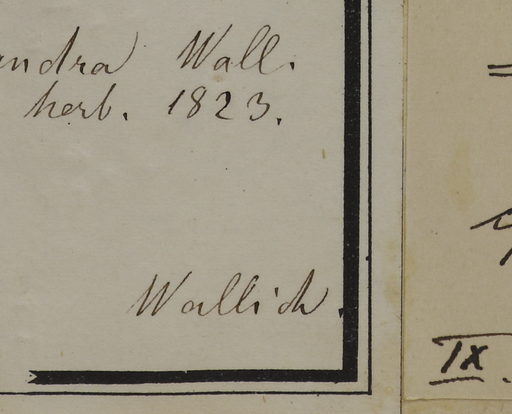 ndra Wall.
herb. 1823.
Wallich.
IX.